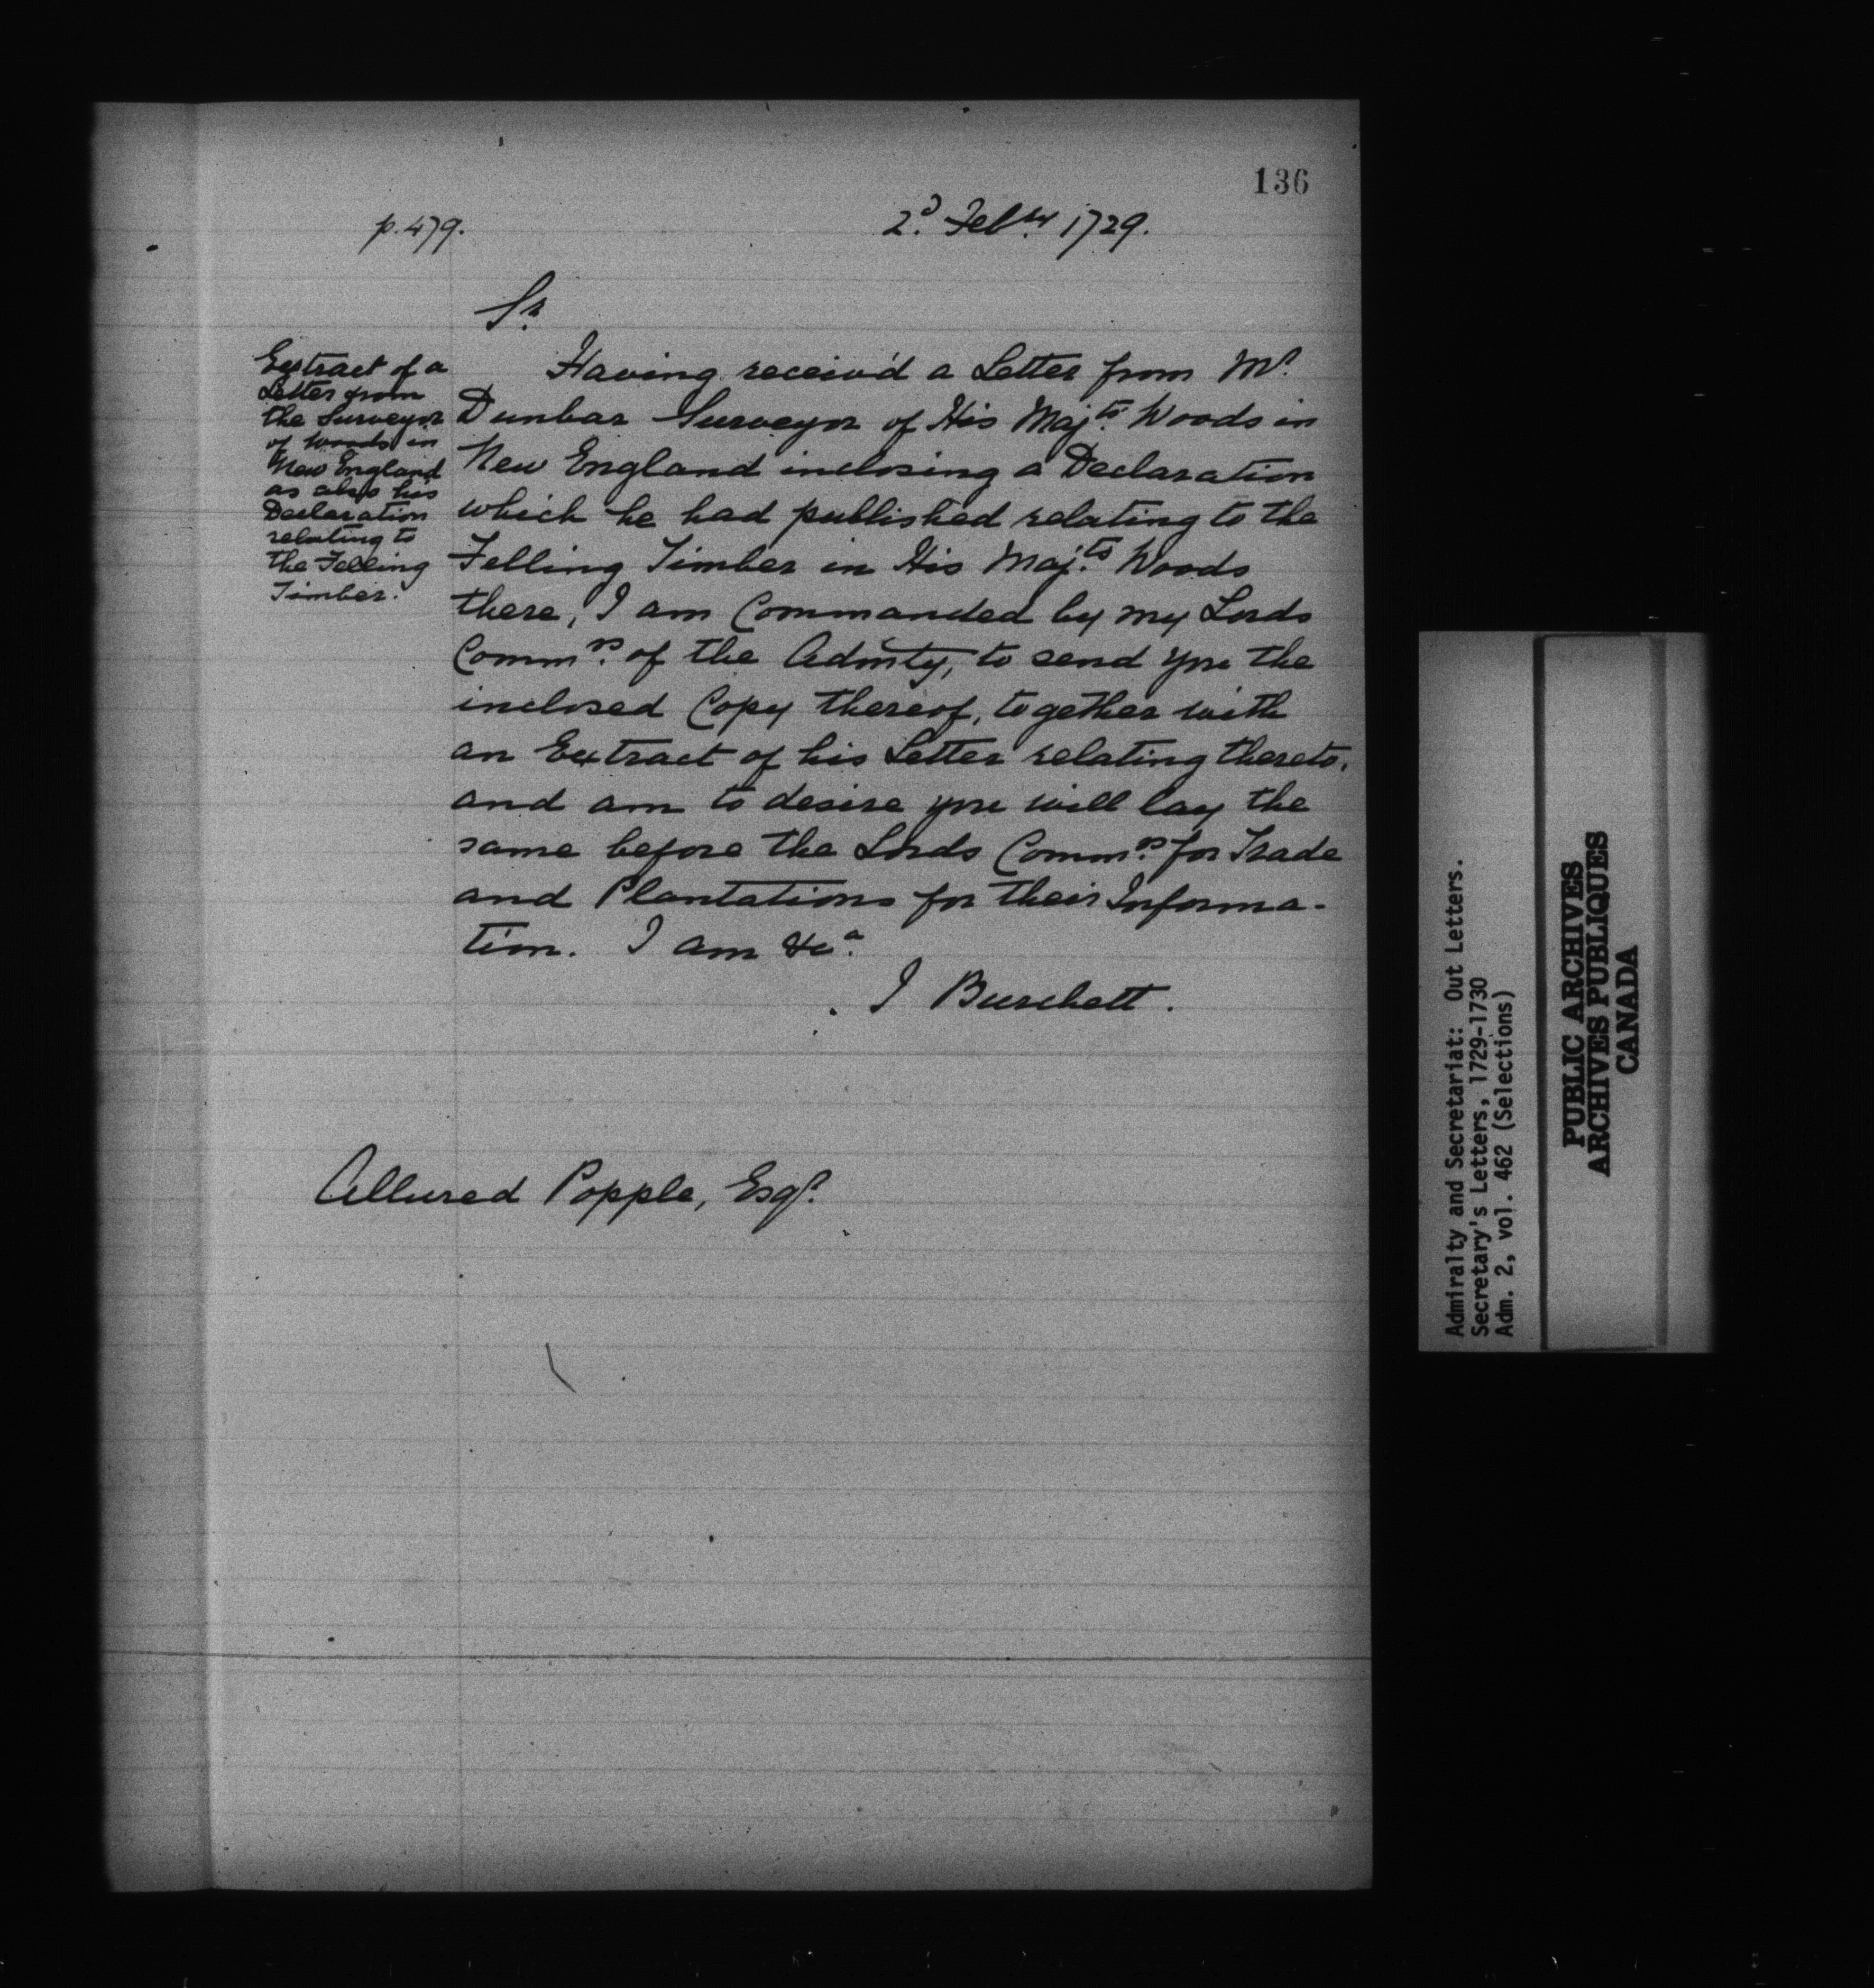 136
p. 479.
2d. Febry 1729.
Sr.
Extract of a
Letter from
the Surveyor
of Woods in
New England
as also his
Declaration
relating to
the Felling
Timber.
Having receiv'd a Letter from Mr.
Dunbar Surveyor of His Maj.ts Woods in
New England inclosing a Declaration
which he had published relating to the
Felling Timber in His Maj.ts Woods
there, I am Commanded by my Lords
Commrs. of the Admty, to send you the
inclosed Copy thereof, together with
an Extract of his Letter relating thereto,
and am to desire you will lay the
same before the Lords Commrs. for Trade
and Plantations for their Informa-
tion. I am &ca.
J Burchett.
Allured Popple, Esqr.
Admiralty and Secretariat: Out Letters.
Secretary's Letters, 1729-1730
Adm. 2, vol. 462 (Selections)
PUBLIC ARCHIVES
ARCHIVES PUBLIQUES
CANADA